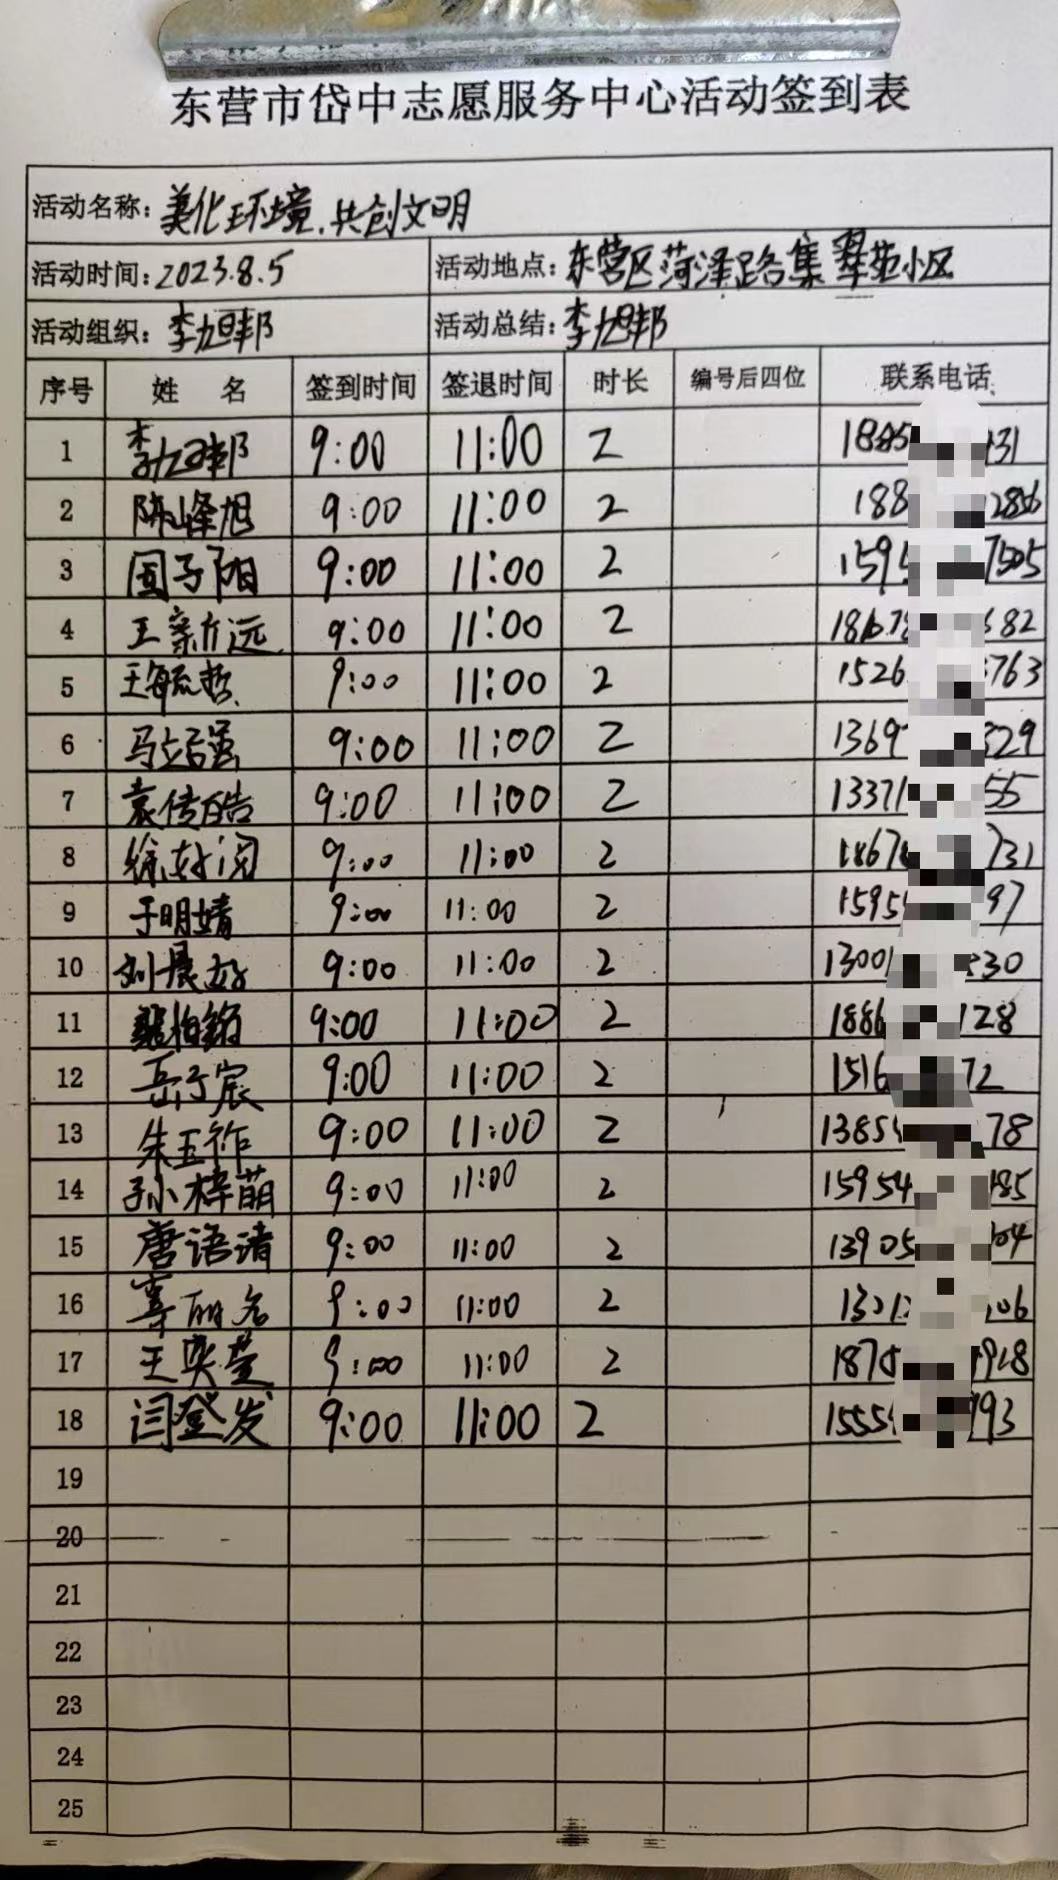 东营市岱中志愿服务中心活动签到表
活动名称：美化环境，共创文明
活动时间：2023.8.5 活动地点：东营区菏泽路集翠苑小区
活动组织：李旭邦 活动总结：李旭邦
序号 姓 名 签到时间 签退时间 时长 编号后四位 联系电话
1 李旭邦 9:00 11:00 2
2 陈峰旭 9:00 11:00 2 188 2856
3 国子阳 9:00 11:00 2 159 7505
4 王新远 9:00 11:00 2 682
5 王毓哲 9:00 11:00 2 1526 763
6 马 9:00 11:00 2 1369 329
7 袁传皓 9:00 11:00 2 13371 55
8 徐 9:00 11:00 2 1867 731
9 于明婧 9:00 11:00 2 1595 97
10 刘晨好 9:00 11:00 2 1300 330
11 9:00 11:00 2 1886 128
12 岳子宸 9:00 11:00 2 1516 72
13 朱玉祚 9:00 11:00 2 1385 78
14 孙梓萌 9:00 11:00 2 15954 485
15 唐语诸 9:00 11:00 2 13905 04
16 9:00 11:00 2 06
17 王奕莹 9:00 11:00 2 187
18 闫登发 9:00 11:00 2 1555 793
19
20
21
22
23
24
25